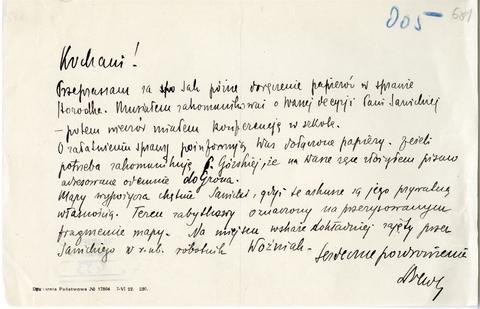 Dos 581
Kochani!
Przepraszam za tak późne doręczenie papierów w sprawie
Horodka. Musiałem zakomunikować o Waszej decyzji Pani Sawickiej
– potem wieczór miałem konferencję w szkole.
O załatwieniu sprawy poinformują Was dołączone papiery. Jeżeli
potrzeba zakomunikuję p. Górskiej, że na Wasze ręce złożyłem pismo
adresowane odemnie do Grona.
Mapy wypożycza chętnie Sawicki, gdyż te ostatnie są jego prywatną
własnością. Teren zabytkowy oznaczony na przerysowanym
fragmencie mapy. Na miejscu wskaże dokładniej zajęty przez
Sawickiego w r. ub. robotnik Woźniak.
Serdeczne pozdrowienia
Drukarnia Państwowa № 17804 7-VI 22.